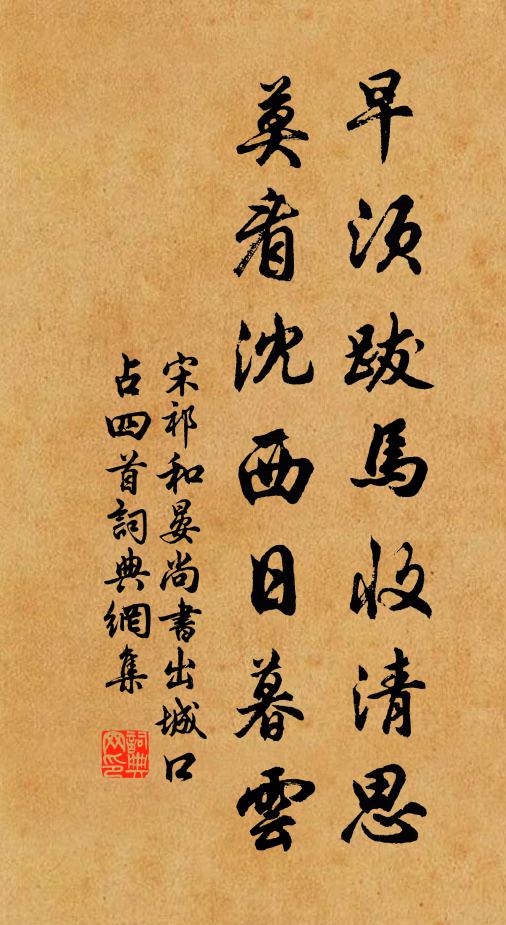 早須跋馬收清思
莫看沈西日暮雲
宋祁和晏尚書出城口
占四首詞典網集
詞典
网印